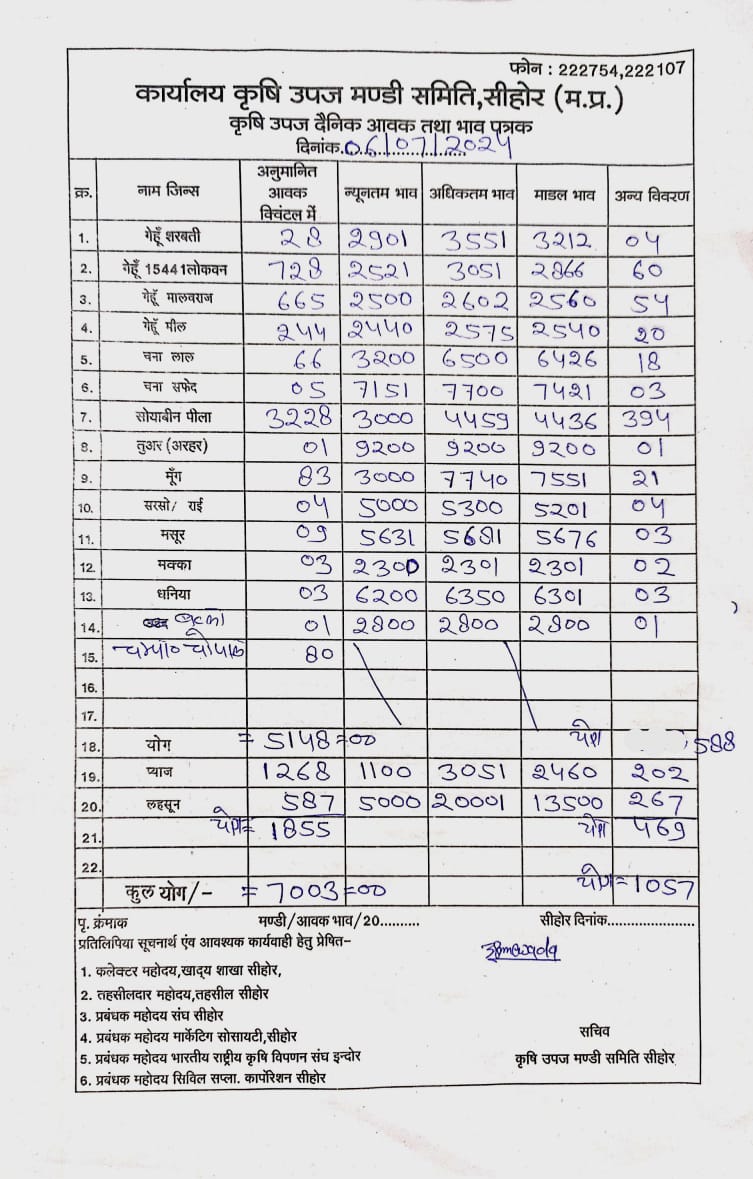 फोन : 222754,222107
कार्यालय कृषि उपज मण्डी समिति,सीहोर (म.प्र.)
कृषि उपज दैनिक आवक तथा भाव पत्रक
दिनांक.06/07/2024
क्र. नाम जिन्स अनुमानित आवक क्विंटल में न्यूनतम भाव अधिकतम भाव माडल भाव अन्य विवरण
1. गेहूँ शरबती 28 2901 3551 3212 04
2. गेहूँ 15441लोकवन 728 2521 3051 2866 60
3. गेहूँ मालवराज 665 2500 2602 2560 54
4. गेहूँ मील 244 2440 2575 2540 20
5. चना लाल 66 3200 6500 6426 18
6. चना सफेद 05 7151 7700 7421 03
7. सोयाबीन पीला 3228 3000 4459 4436 394
8. तुअर (अरहर) 01 9200 9200 9200 01
9. मूँग 83 3000 7740 7551 21
10. सरसो/ राई 04 5000 5300 5201 04
11. मसूर 09 5631 5681 5676 03
12. मक्का 03 2300 2301 2301 02
13. धनिया 03 6200 6350 6301 03
14. 01 2800 2800 2800 01
15. 80
16.
17.
18. योग = 5148=00 योग 588
19. प्याज 1268 1100 3051 2460 202
20. लहसून 587 5000 20001 13500 267
21. योग= 1855 योग 469
22.
कुल योग/- = 7003=00 योग=1057
पृ. क्रंमाक मण्डी/आवक भाव/20.......... सीहोर दिनांक......................
प्रतिलिपिया सूचनार्थ एंव आवश्यक कार्यवाही हेतु प्रेषित-
1. कलेक्टर महोदय,खाद्य शाखा सीहोर,
2. तहसीलदार महोदय,तहसील सीहोर
3. प्रबंधक महोदय संघ सीहोर
4. प्रबंधक महोदय मार्केटिग सोसायटी,सीहोर
5. प्रबंधक महोदय भारतीय राष्ट्रीय कृषि विपणन संघ इन्दोर
6. प्रबंधक महोदय सिविल सप्ला. कार्पोरेशन सीहोर
सचिव
कृषि उपज मण्डी समिति सीहोर